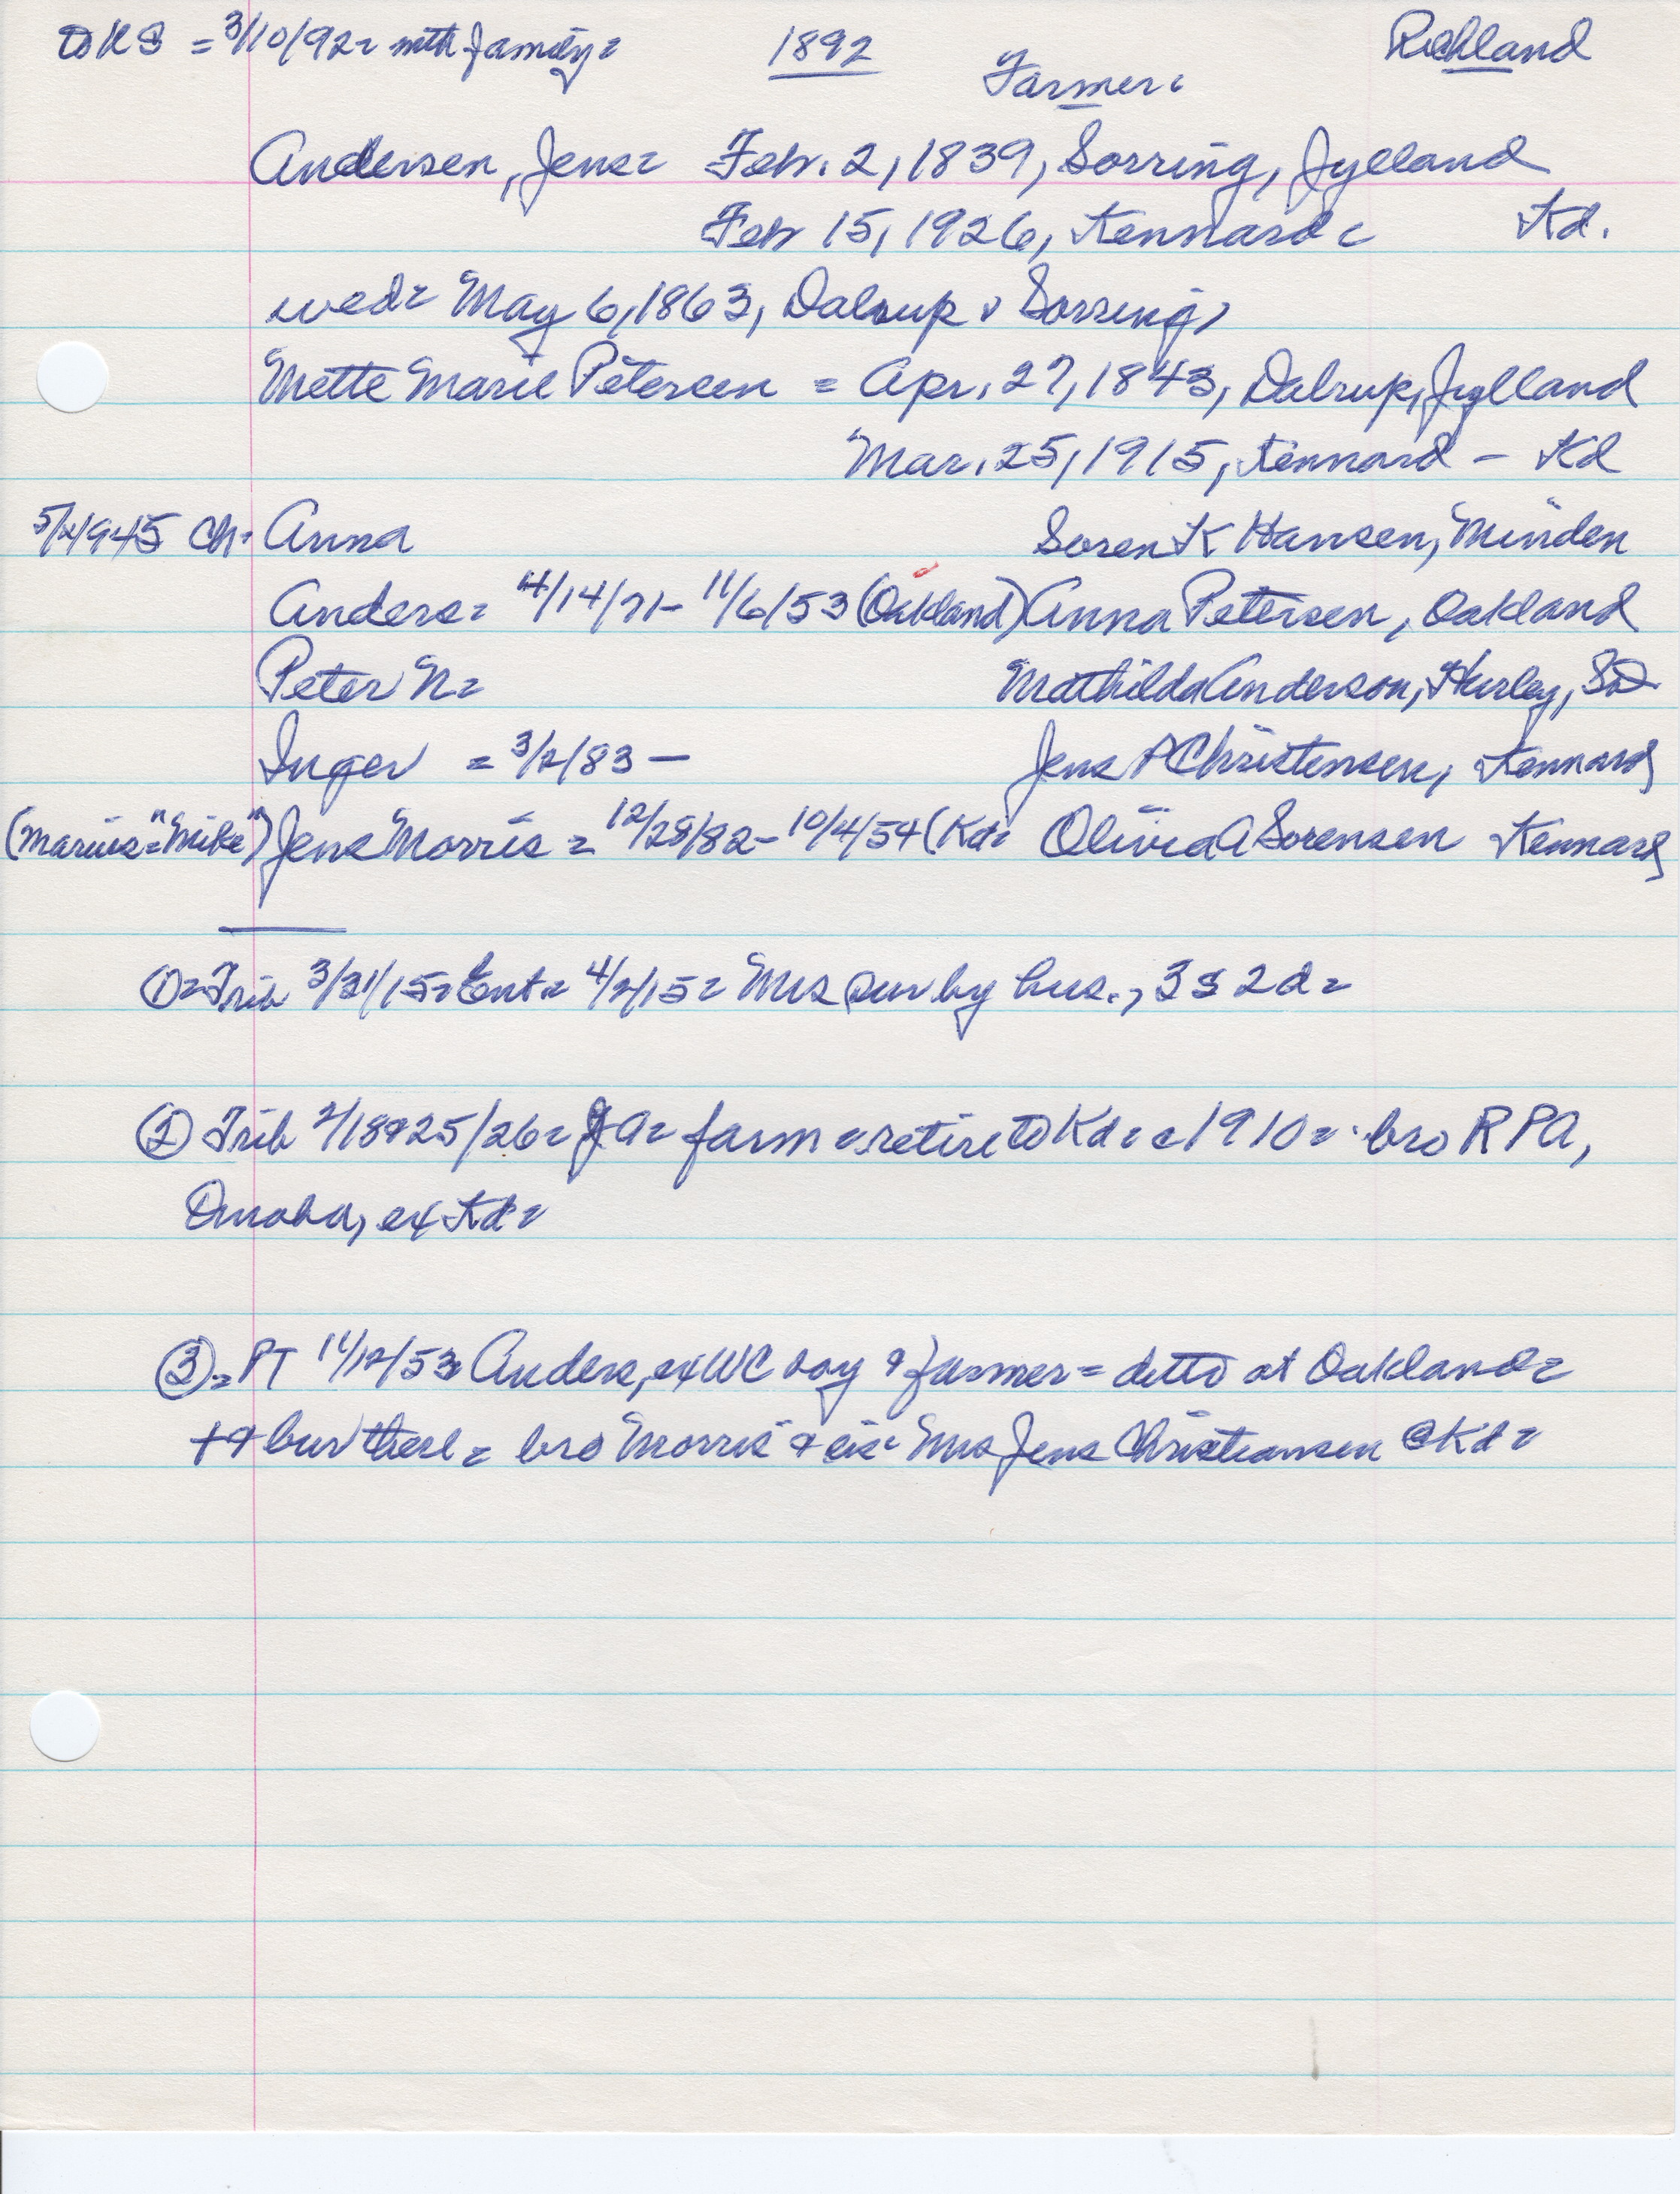 DKS = 3/10/92= with family= 1892 Richland
Farmer=
Andersen, Jens= Feb. 2, 1839, Sorring, Jylland
Feb 15, 1926, Kennard= Kd.
wed= May 6, 1863, Dalrup, Sorring,
Mette Marie Petersen = Apr. 27, 1843, Dalrup, Jylland
Mar. 25, 1915, Kennard - Kd
Ch= Anna Soren K Hansen, Minden
Anders= 4/14/71- 11/6/53 (Oakland) Anna Petersen, Oakland
Peter N= Mathilda Anderson, Hurley, SD
Inger = 3/2/83 - Jens P Christensen, Kennard
(Marius="Mike") Jens Morris = 12/28/82- 10/4/54 (Kd= Olivia A Sorensen Kennard
①=Trib 3/31/15= Ent= 4/2/15= Mrs sur by hus., 3 s 2 d=
② Trib 2/18&25/26= JA= farm= retire to Kd= c 1910= bro RPA,
Omaha, ex Kd=
③= PT 11/12/53= Anders, ex WC boy & farmer= ditto at Oakland=
+& bur there= bro Morris & sis= Mrs Jens Christiansen @ Kd=